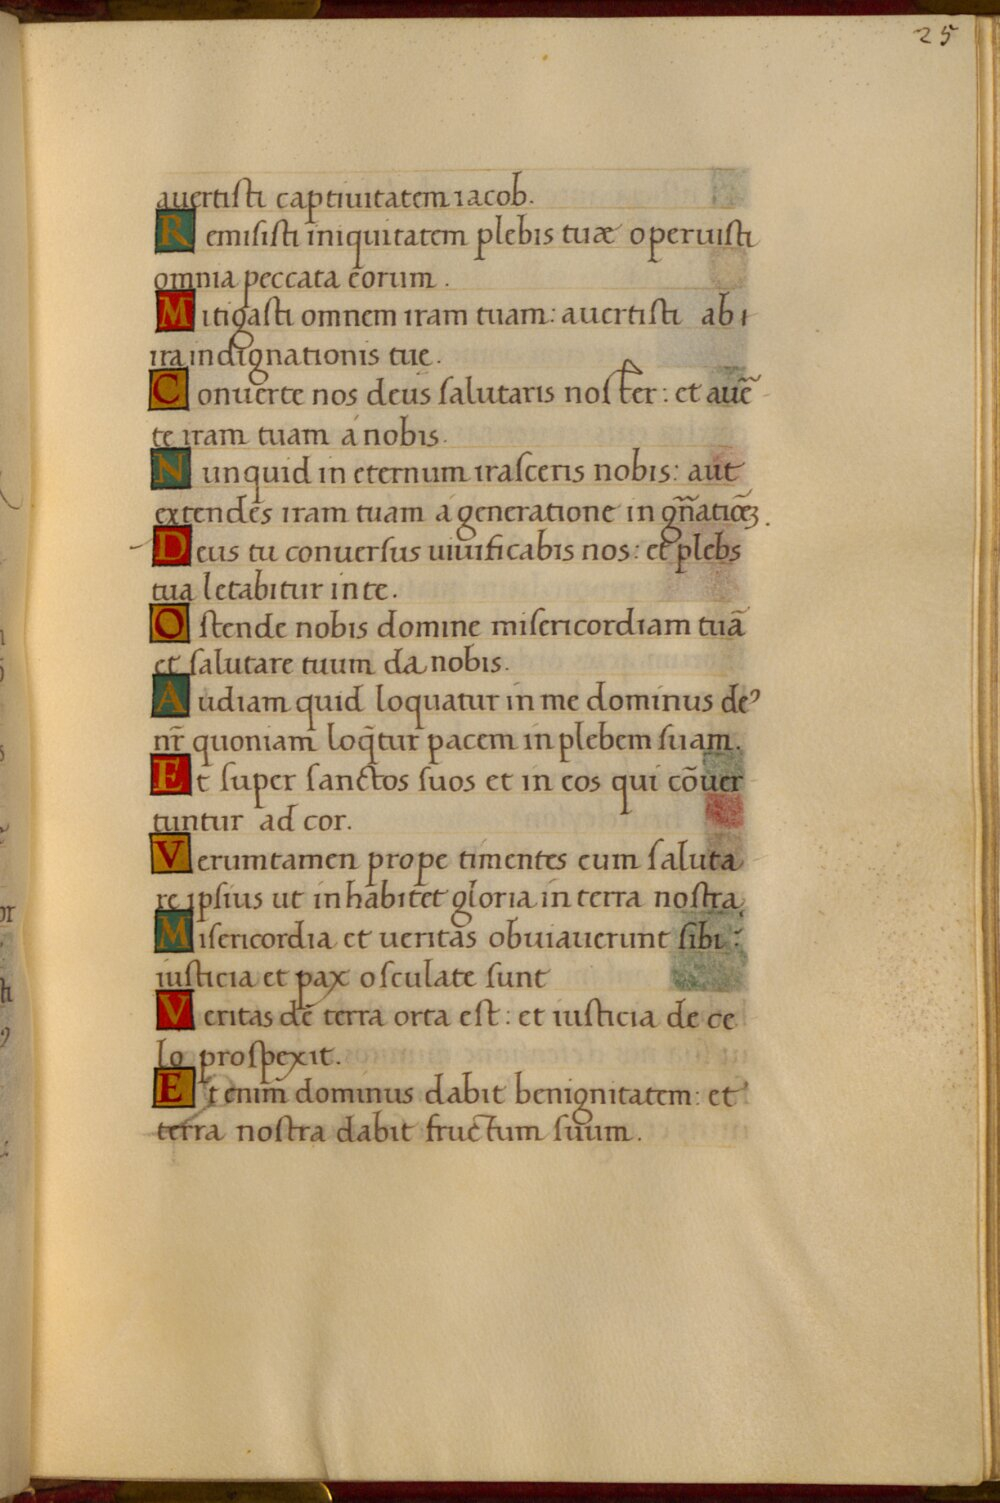 25
auertisti captiuitatem iacob.
Remisisti iniquitatem plebis tuæ operuisti
omnia peccata eorum.
Mitigasti omnem iram tuam: auertisti ab i
ira indignationis tuę.
Conuerte nos deus salutaris noster: et auẽ
te iram tuam á nobis.
Nunquid in eternum irasceris nobis: aut
extendes iram tuam á generatione in gñatiõeꝫ.
Deus tu conuersus uiuificabis nos: et plebs
tua letabitur in te.
Ostende nobis domine misericordiam tuã
et salutare tuum da nobis.
Audiam quid loquatur in me dominus deꝰ
nr̃ quoniam loq̃tur pacem in plebem suam.
Et super sanctos suos et in eos qui cõuer
tuntur ad cor.
Verumtamen prope timentes eum saluta
re ipsius ut inhabitet gloria in terra nostra.
Misericordia et ueritas obuiauerunt sibi:
iusticia et pax osculate sunt
Veritas de terra orta est: et iusticia de ce
lo prospexit.
Etenim dominus dabit benignitatem: et
terra nostra dabit fructum suum.